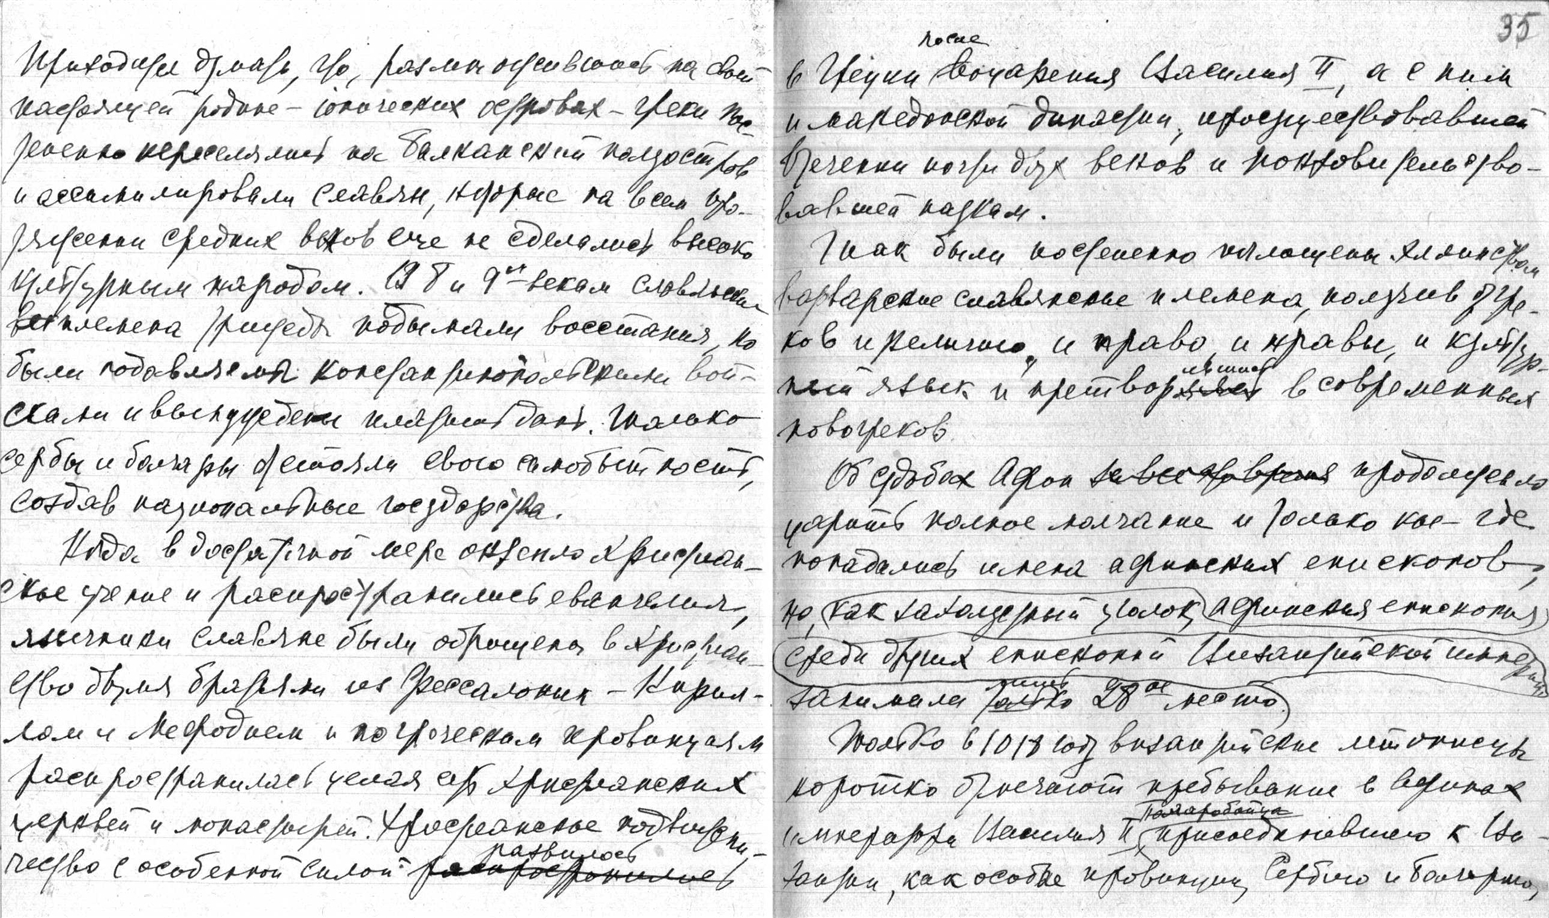 Приходится думать, что, размножившись на своей
настоящей родине – ионических островах – греки пос-
тепенно переселялись на Балканский полуостров
и ассимилировали славян, которые на всем про-
тяжении средних веков еще не сделались высоко
культурным народом. В 8 и 9ым векам славянские
племена трижды подымали восстания, но
были подавляемы константинопольскими вой-
сками и вынуждены платить дань. Только
сербы и болгары отстояли свою самобытность,
создав национальные государства.
Когда в достаточной мере окрепло христиан-
ское учение и распространились евангелия,
язычники славяне были обращены в христиан-
ство двумя братьями из Фессалоник – Кирил-
лом и Мефодием и по греческим провинциям
распространилась целая сеть христианских
церквей и монастырей. Христианское подвижни-
чество с особенной силой развилось распространилось
35
после
в Греции воцарения Василия II, а с ним
и македонской династии, просуществовавшей
в течении почти двух веков и покровительство-
вавшей наукам.
Так были постепенно поглощены эллинством
варварские славянские племена, получив от гре-
ков и религию, и право и нравы, и культур-
ный язык и претворившись в современных
новогреков
Об судьбах Афон за все это время продолжало
царить полное молчание и только кое-где
попадались имена афинских епископов,
но, как захолустный уголок, афинская епископия
среди других епископий Византийской империи
занимала лишь только 28ое место
Только в 1018 году византийские летописцы
коротко отмечают пребывание в Афинах
императора Василия II, Болгаробойца присоединившего к Ви-
зантии, как особые провинции, Сербию и Болгарию,